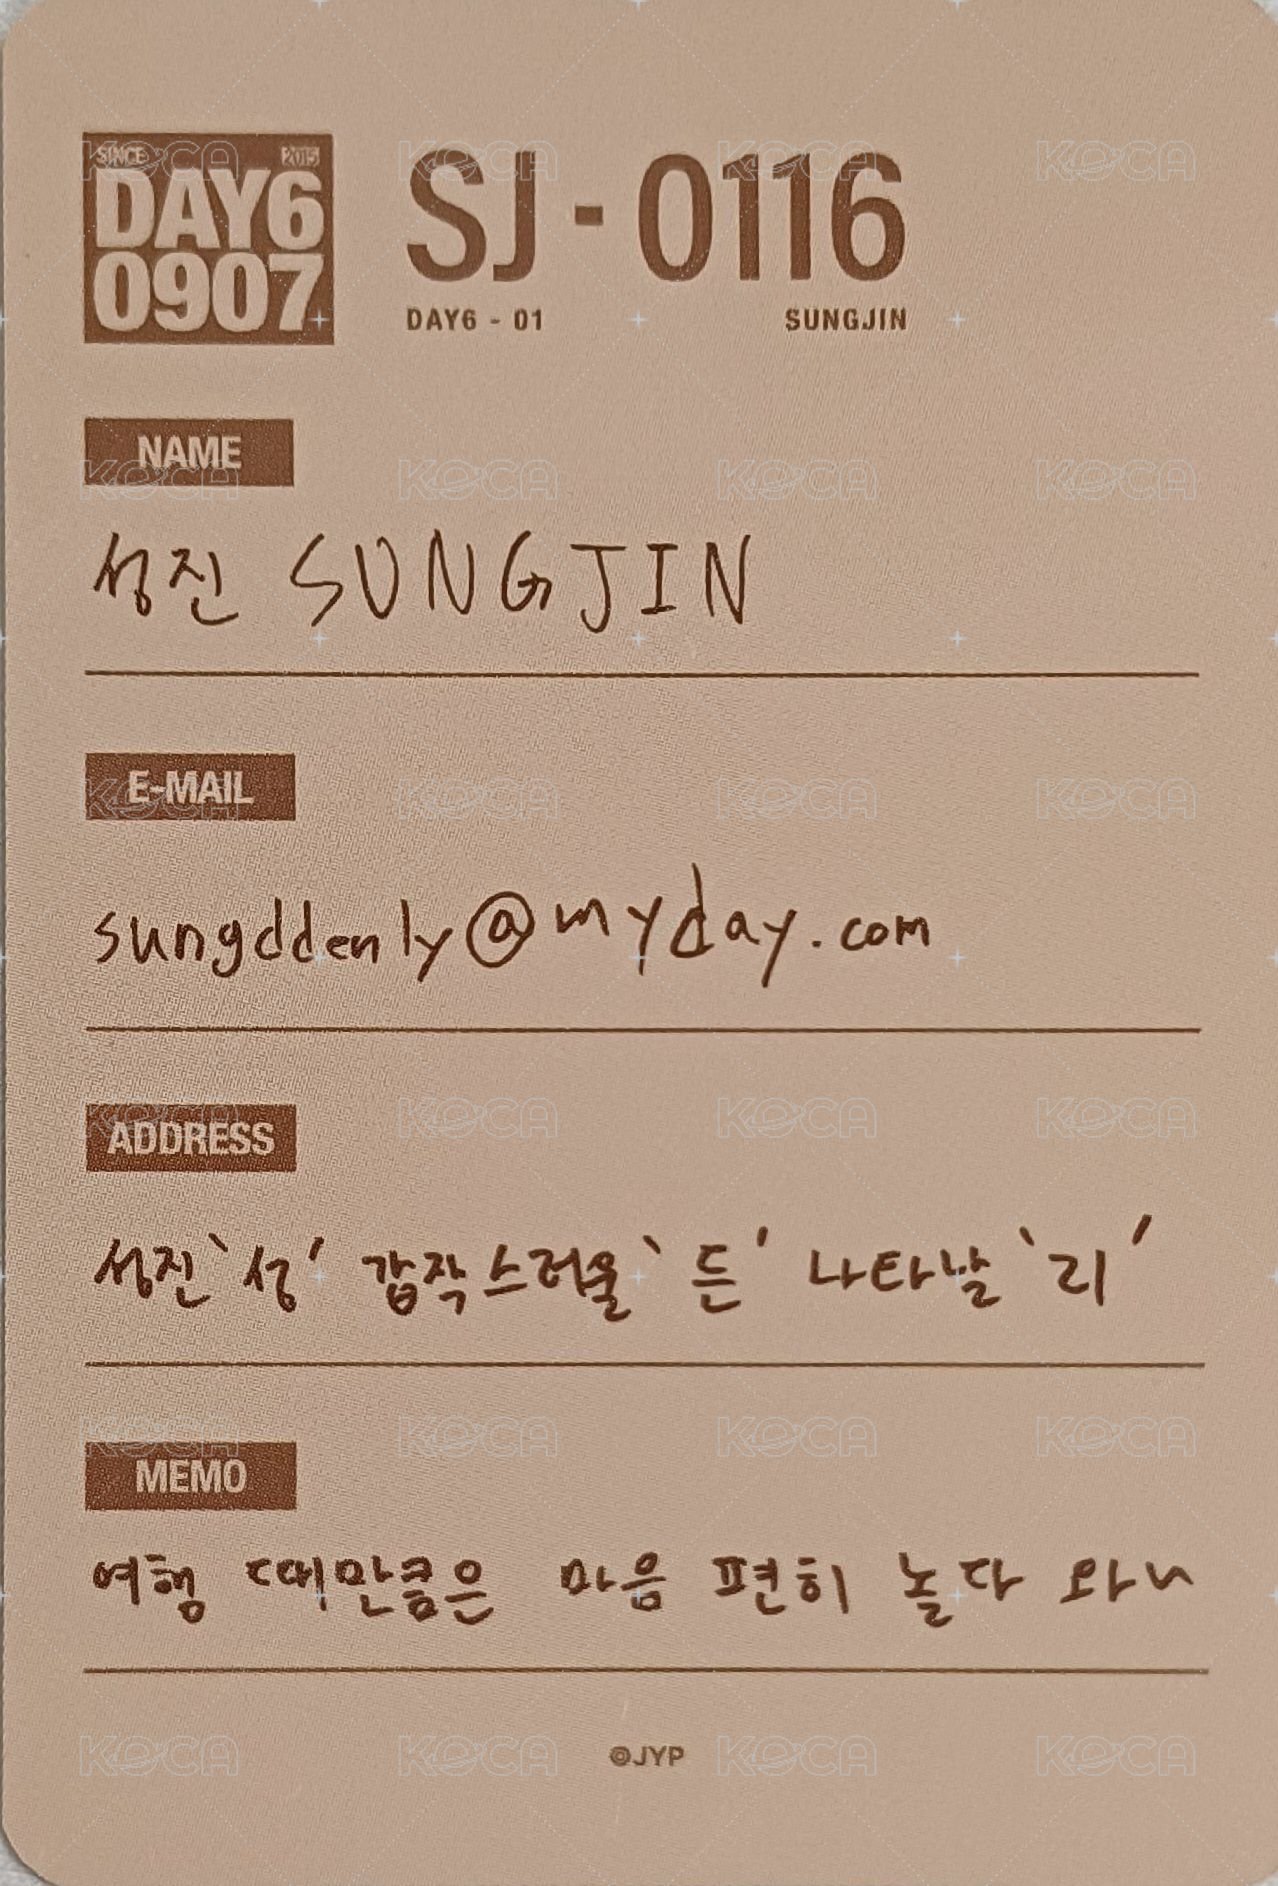 SINCE 2015
DAY6
0907
SJ - 0116
DAY6 - 01 SUNGJIN
NAME
성진 SUNGJIN
E-MAIL
sungddenly@myday.com
ADDRESS
성진'성' 갑작스러울'든' 나타날'리'
MEMO
여행 때만큼은 마음 편히 놀다 와~
©JYP
KOCA